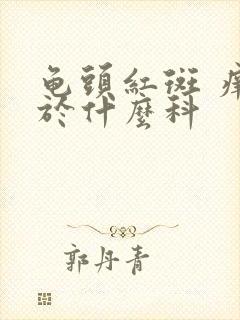 龟頭紅斑 癢
於什麼科
郭丹青